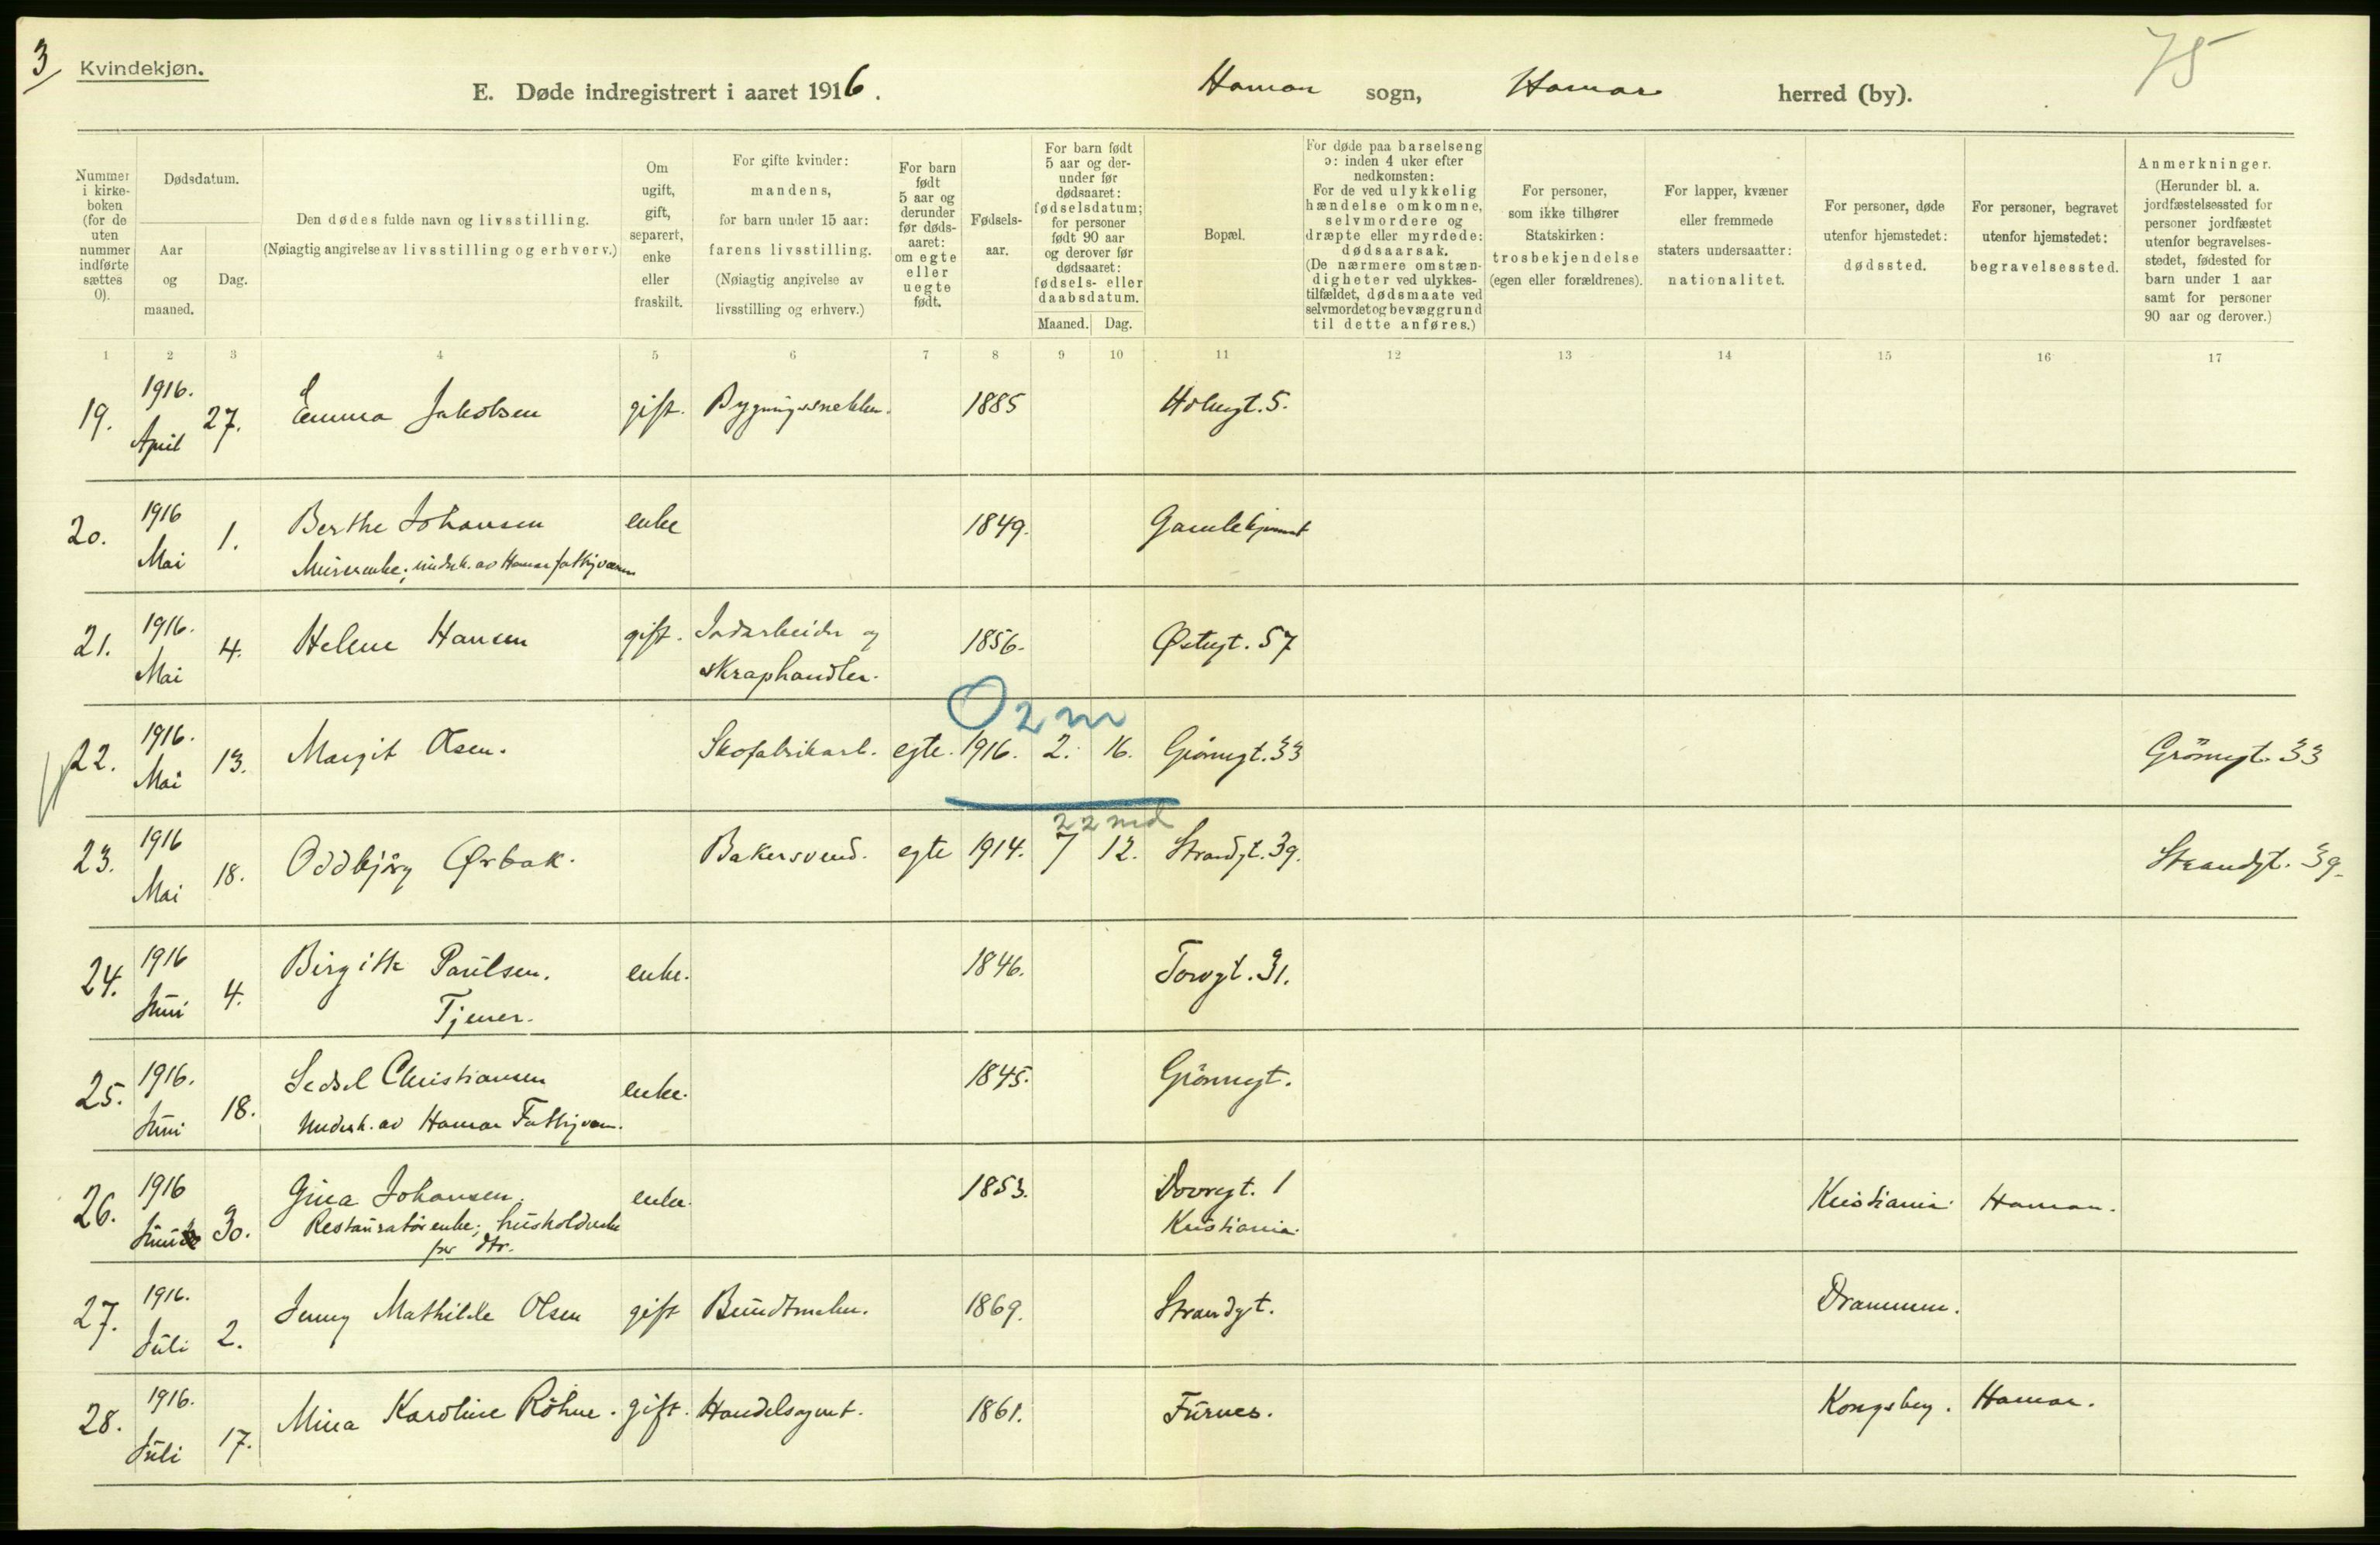 3
Kvindekjøn.
75
E. Døde indregistrert i aaret 1916.
Hamar sogn, Hamar herred (by).
Nummer i kirkeboken (for de uten nummer indførte sættes 0).
Dødsdatum.
Aar og maaned.
Dag.
Den dødes fulde navn og livsstilling.
(Nøiagtig angivelse av livsstilling og erhverv.)
Om ugift, gift, separert, enke eller fraskilt.
For gifte kvinder: mandens, for barn under 15 aar: farens livsstilling.
(Nøiagtig angivelse av livsstilling og erhverv.)
For barn født 5 aar og derunder før dødsaaret: om egte eller uegte født.
Fødselsaar.
For barn født 5 aar og derunder før dødsaaret: fødselsdatum; for personer født 90 aar og derover før dødsaaret: fødsels- eller daabsdatum.
Maaned. Dag.
Bopæl.
For døde paa barselseng ɔ: inden 4 uker efter nedkomsten:
For de ved ulykkelig hændelse omkomne, selvmordere og dræpte eller myrdede: dødsaarsak.
(De nærmere omstændigheter ved ulykkestilfældet, dødsmaate ved selvmordet og bevæggrund til dette anføres.)
For personer, som ikke tilhører Statskirken: trosbekjendelse (egen eller forældrenes).
For lapper, kvæner eller fremmede staters undersaatter: nationalitet.
For personer, døde utenfor hjemstedet: dødssted.
For personer, begravet utenfor hjemstedet: begravelsessted.
Anmerkninger.
(Herunder bl. a. jordfæstelsessted for personer jordfæstet utenfor begravelsesstedet, fødested for barn under 1 aar samt for personer 90 aar og derover.)
1 2 3 4 5 6 7 8 9 10 11 12 13 14 15 16 17
19. 1916. April 27. Emma Jakobsen gift. Bygningssnekker. 1885 Holsgt. 5.
20. 1916 Mai 1. Berthe Johansen enke 1849. Gamlehjemmet
Murerenke; underh. av Hamar fattigvæsen
21. 1916. Mai 4. Helene Hansen gift. Jordarbeider og 1856. Østregt. 57
skraphandler.
O 2 m
22. 1916. Mai 13. Margit Olsen. Skofabrikarb. egte. 1916. 2. 16. Grønnegt. 33 Grønnegt. 33
22 md
23. 1916 Mai 18. Oddbjørg Ørbak. Bakersvend. egte 1914. 7 12. Strandgt. 39. Strandgt. 39.
24. 1916 Juni 4. Birgitte Paulsen. enke. 1846. Torvgt. 31.
Tjener.
25. 1916. Juni 18. Sedsel Christiansen enke. 1845. Grønnegt.
Underh. av Hamar Fattigvæs.
26. 1916 Juni 30. Gina Johansen. enke. 1853. Dovregt. 1 Kristiania. Kristiania. Hamar.
Restauratørenke; husholderske
for dtr.
27. 1916. Juli 2. Jenny Mathilde Olsen gift Bundtmaker. 1869. Strandgt. Drammen.
28. 1916. Juli 17. Mina Karoline Röhne. gift. Handelsagent. 1861. Furnes. Kongsberg. Hamar.